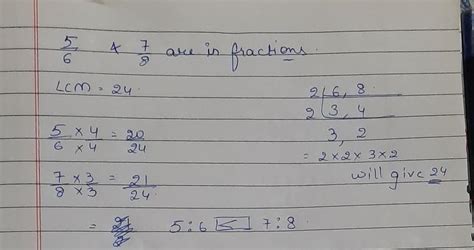 5/6 & 7/8 are in fractions.
LCM = 24.
2 | 6, 8
2 | 3, 4
3, 2
= 2 x 2 x 3 x 2
will give 24
5 x 4 / 6 x 4 = 20 / 24
7 x 3 / 8 x 3 = 21 / 24.
= 5 : 6 < 7 : 8